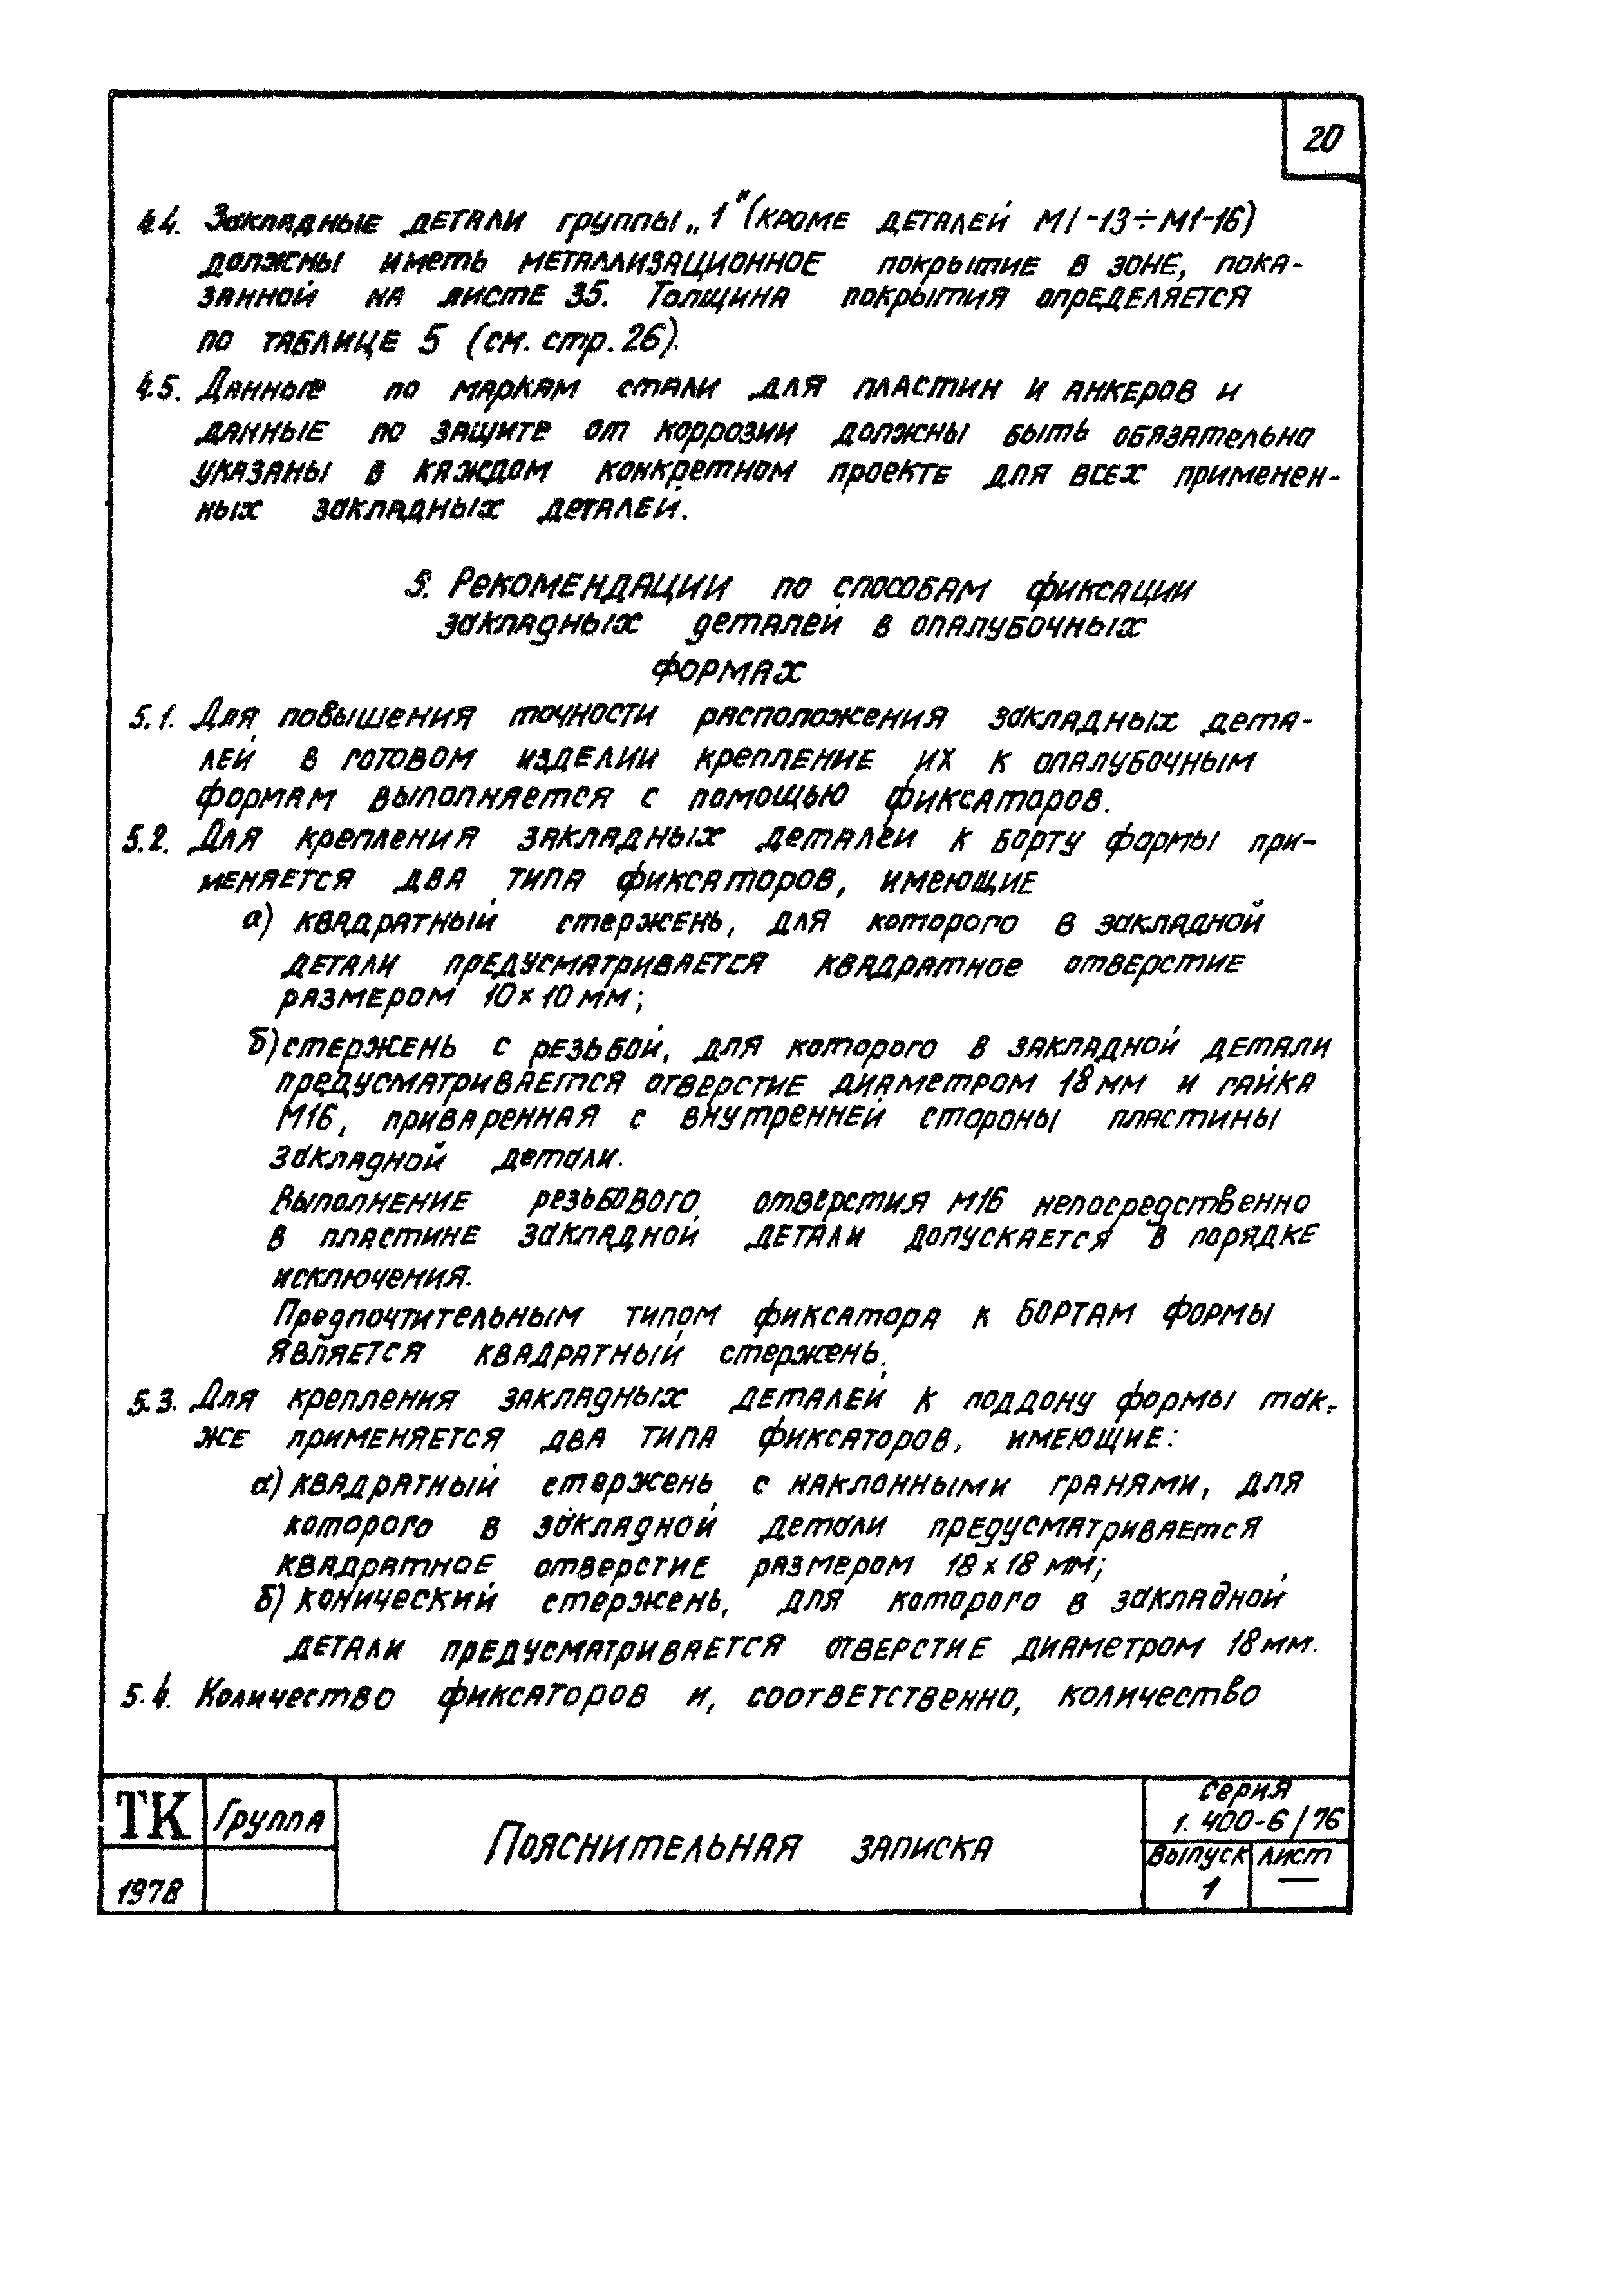 20
4.4. Закладные детали группы „1" (кроме деталей М1-13÷М1-16)
должны иметь металлизационное покрытие в зоне, пока-
занной на листе 35. Толщина покрытия определяется
по таблице 5 (см. стр. 26).
4.5. Данные по маркам стали для пластин и анкеров и
данные по защите от коррозии должны быть обязательно
указаны в каждом конкретном проекте для всех применен-
ных закладных деталей.
5. Рекомендации по способам фиксации
закладных деталей в опалубочных
формах
5.1. Для повышения точности расположения закладных дета-
лей в готовом изделии крепление их к опалубочным
формам выполняется с помощью фиксаторов.
5.2. Для крепления закладных деталей к борту формы при-
меняется два типа фиксаторов, имеющие
а) квадратный стержень, для которого в закладной
детали предусматривается квадратное отверстие
размером 10×10 мм;
б) стержень с резьбой, для которого в закладной детали
предусматривается отверстие диаметром 18 мм и гайка
М16, приваренная с внутренней стороны пластины
закладной детали.
Выполнение резьбового отверстия М16 непосредственно
в пластине закладной детали допускается в порядке
исключения.
Предпочтительным типом фиксатора к бортам формы
является квадратный стержень.
5.3. Для крепления закладных деталей к поддону формы так-
же применяется два типа фиксаторов, имеющие:
а) квадратный стержень с наклонными гранями, для
которого в закладной детали предусматривается
квадратное отверстие размером 18×18 мм;
б) конический стержень, для которого в закладной
детали предусматривается отверстие диаметром 18 мм.
5.4. Количество фиксаторов и, соответственно, количество
ТК
Группа
1978
Пояснительная записка
Серия
1.400-6/76
Выпуск
1
Лист
—